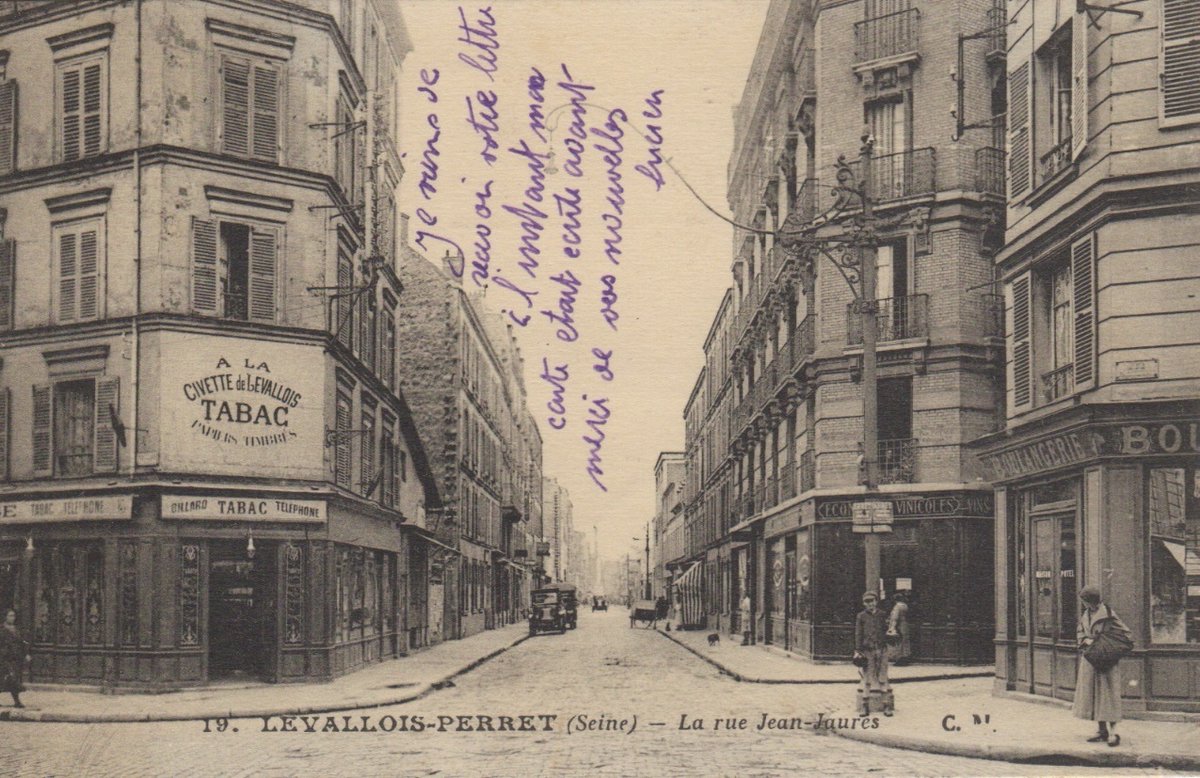 Je viens de
recevoir votre lettre
a l'instant ma
carte etait ecrite avant
merci de vos nouveles
lucien
A LA
CIVETTE de LEVALLOIS
TABAC
PAPIERS TIMBRÉS
TABAC TELEPHONE
BILLARD TABAC TELEPHONE
VINICOLES VINS
BOULANGERIE BOU
19. LEVALLOIS-PERRET (Seine) — La rue Jean-Jaurès C. M.